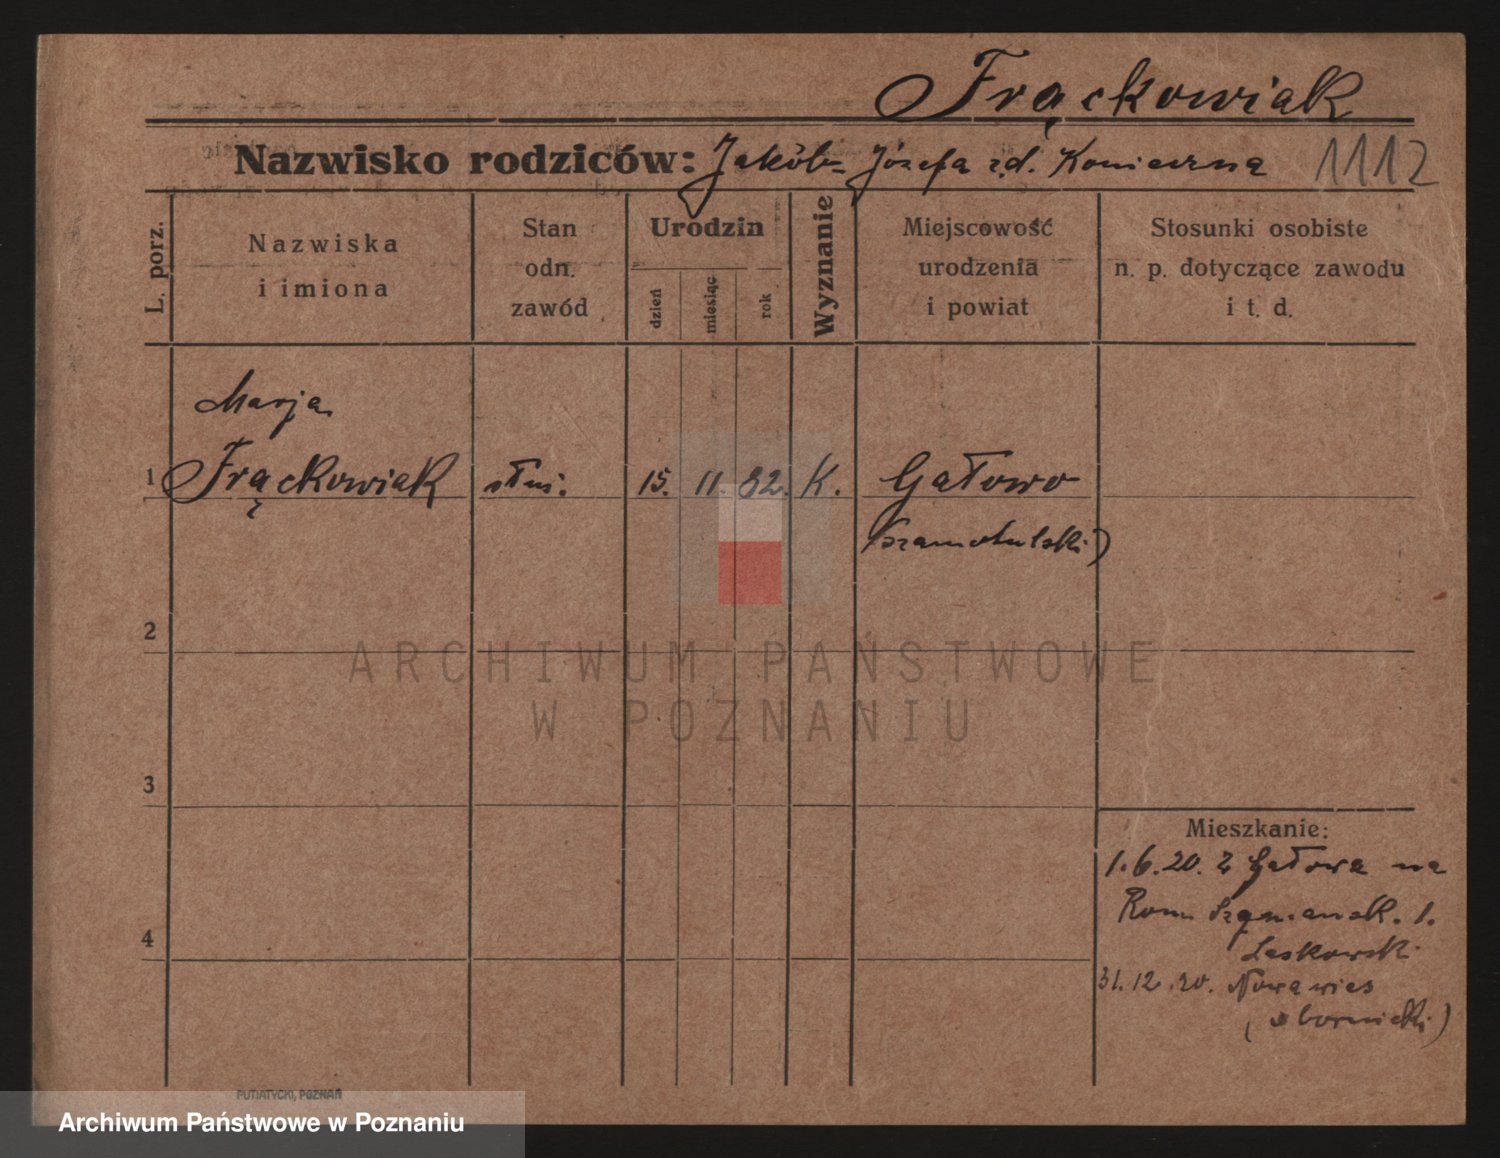 Frąckowiak
Nazwisko rodziców: Jakób Józefa zd. Konieczna 1112
L. porz.
Nazwiska
i imiona
Stan
odn.
zawód
Urodzin
dzień
miesiąc
rok
Wyznanie
Miejscowość
urodzenia
i powiat
Stosunki osobiste
n. p. dotyczące zawodu
i t. d.
Marja
1 Frąckowiak służ. 15. 11. 82. K. Gałowo
(szamotulski)
2
ARCHIWUM PAŃSTWOWE
W POZNANIU
3
Mieszkanie:
1.6.20. z Gałowa na
4
31.12.20. Nowawies
(obornicki)
PUTIATYCKI, POZNAŃ
Archiwum Państwowe w Poznaniu